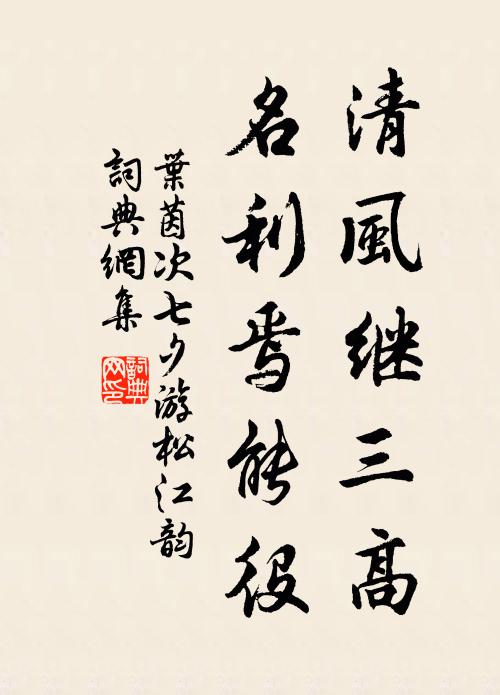 清風继三高
名利焉能役
葉茵次七夕游松江韵
詞典網集
詞典
网印